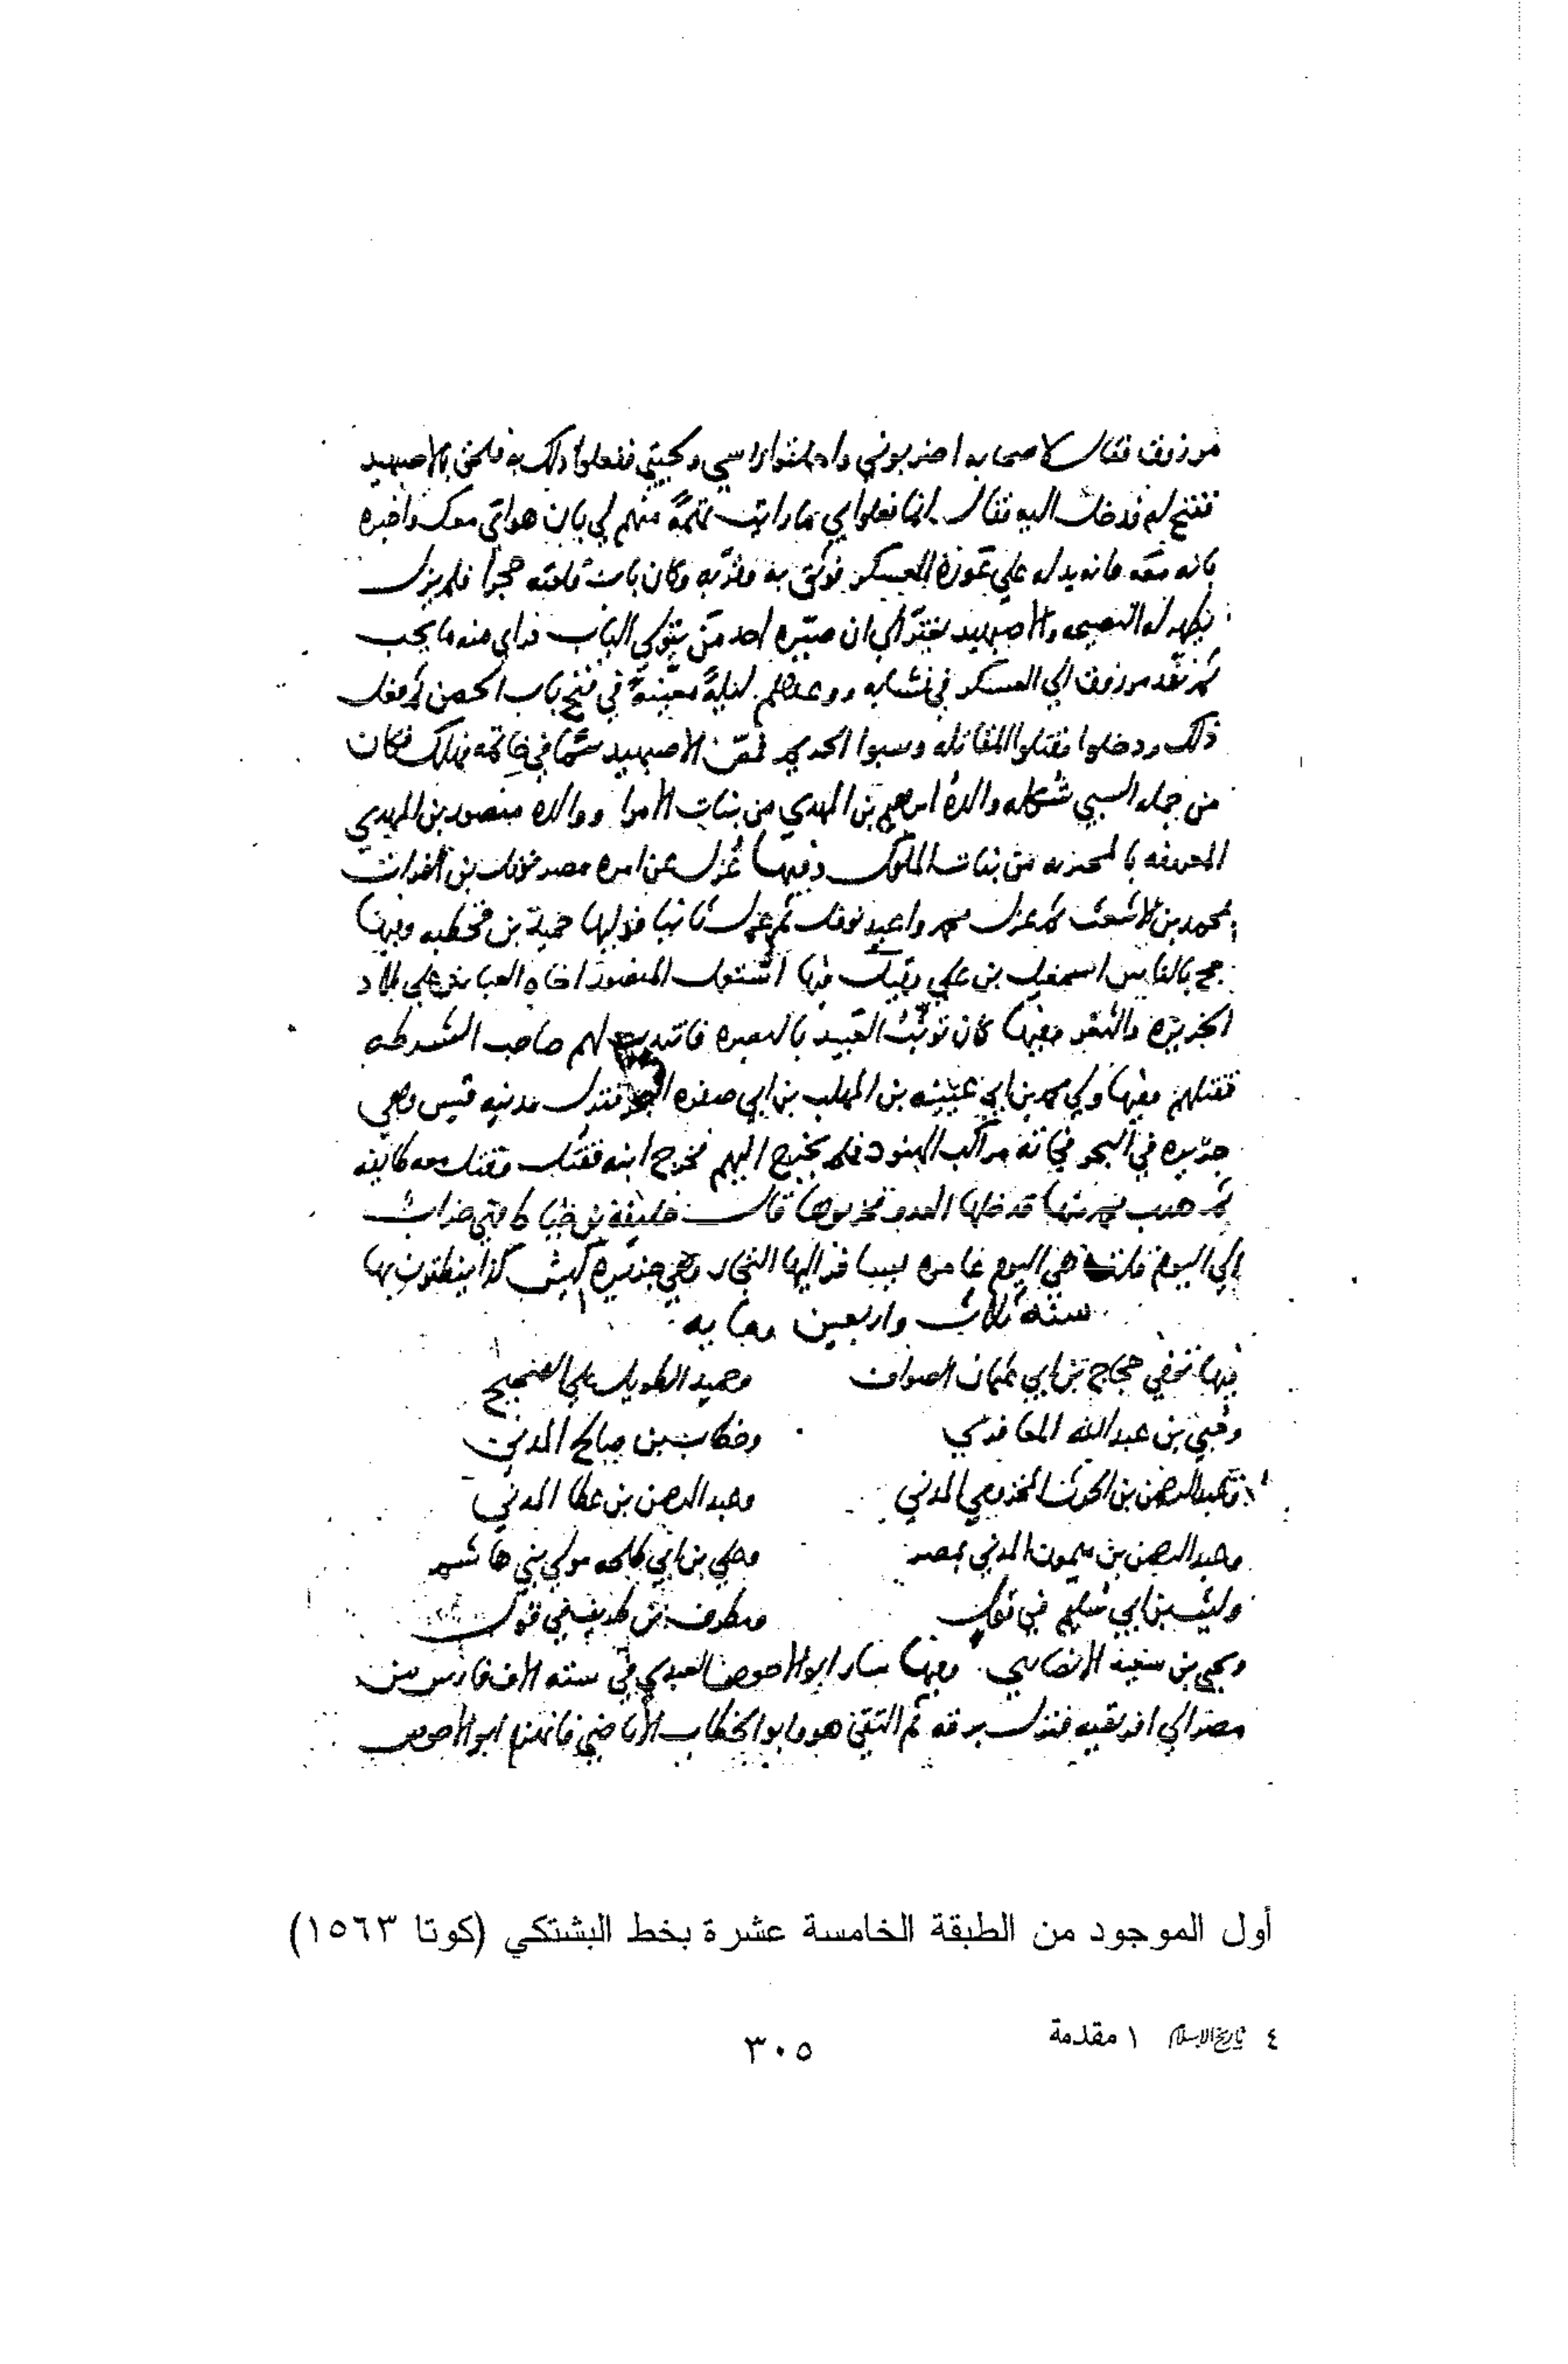 مرزوق فقال لاصحابه اضربوني واحلقوا راسي ولحيتي ففعلوا ذلك به فلحق بالاصبهبذ
ففتح له فدخل اليه فقال انما فعلوا بي ما رايت تهمة منهم لي بان هواي معك واخبره
بانه معه وانه يدله على عورة العسكر فوثق به وقربه وكان باب قلعته حجرا فلم يزل
يظهر له النصح والاصبهبد يغتر الى ان صيره احد من يتولى الباب فراى منه ما يحب
ثم نفذ مرزوق الى العسكر في نشابه ووعدهم ليلة معينة في فتح باب الحصن ففعل
ذلك ودخلوا فقتلوا المقاتلة وسبوا الحريم فمص الاصبهبد سما في خاتمه فهلك فكان
من جمله السبي شكله والدة ابرهيم بن المهدي من بنات الامرا ووالده منصور بن المهدي
المعروفه بالبحتريه من بنات الملوك وفيها عزل عن امره مصر نوفل بن الفرات
بمحمد بن الاشعث ثم عزل محمد واعيد نوفل ثم عزل ثانيا فوليها حميد بن قحطبه وفيها
حج بالناس اسمعيل بن علي وفيها استعمل المنصور اخاه العباس على بلاد
الجزيره والثغر وفيها كان توثب العبيد بالبصره فانتدب لهم صاحب الشرطه
فقتلهم وفيها ولي محمد بن ابي عيينه بن المهلب بن ابي صفره البحر فنزل مدينه قيس وهي
جزيره في البحر فاته مراكب الهنود فلم يخرج اليهم فخرج ابنه فقتل وقتل معه طايفه
ثم هرب محمد منها فدخلها العدو فخربوها قال خليفة بن خياط فهي خراب
الى اليوم قلت هي اليوم عامره يسافر اليها التجار وهي جزيره كيش كذا ينطقون بها
سنه ثلاث واربعين ومايه
فيها توفي حجاج بن ابي عثمان الصواف وحميد الطويل على الصحيح
وحيي بن عبد الله المعافري وخطاب بن صالح المدني
وعبد الرحمن بن الحرث المخزومي المدني وعبد الرحمن بن عطا المدني
وعبد الرحمن بن ميمون المدني بمصر وعلي بن ابي طلحه مولى بني هاشم
وليث بن ابي سليم في قول ومطرف بن طريف في قول
ويحيى بن سعيد الانصاري وفيها سار ابو الاحوص العبدي في سته الاف فارس من
مصر الى افريقيه فنزل برقه ثم التقى هو وابو الخطاب الاباضي فانهزم ابو الاحوص
أول الموجود من الطبقة الخامسة عشرة بخط البشتكي (كوتا ١٥٦٣)
٤ تاريخ الإسلام ١ مقدمة
٣٠٥